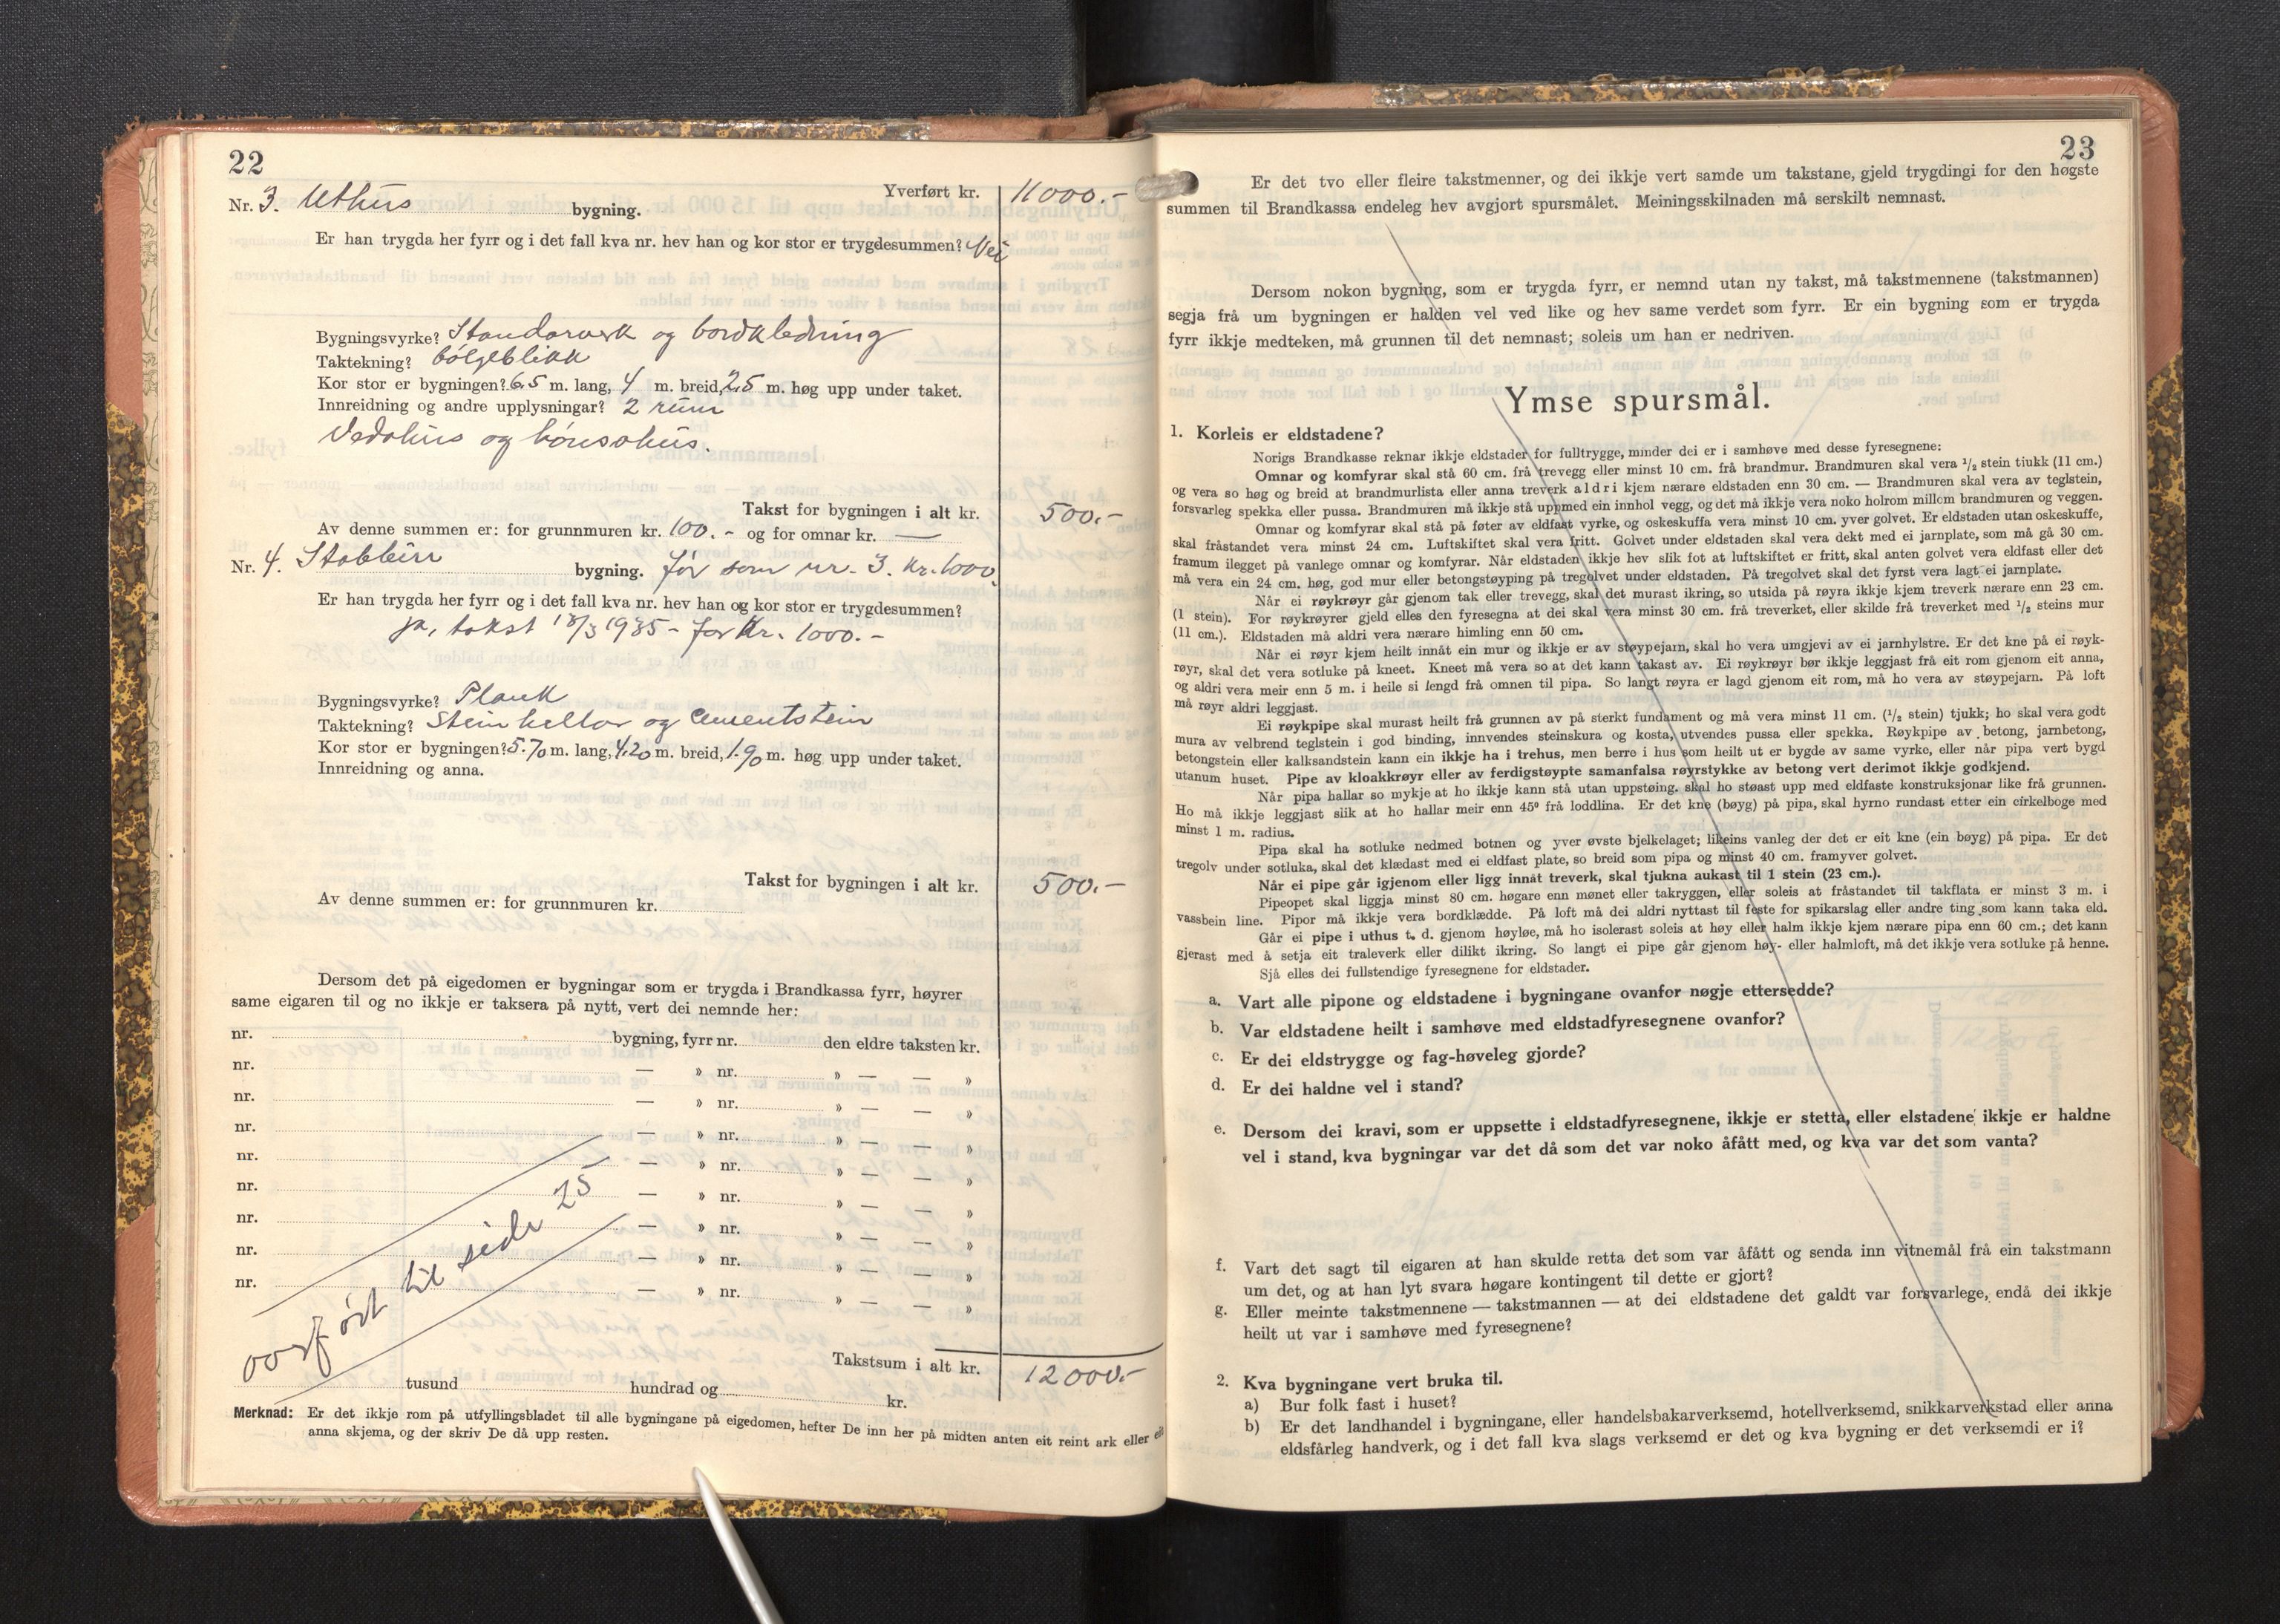 22
Yverført kr. 11000.-
Nr. 3. Uthus bygning.
Er han trygda her fyrr og i det fall kva nr. hev han og kor stor er trygdesummen? Nei
Bygningsvyrke? Standarverk og bordkledning
Taktekning? bölgeblikk
Kor stor er bygningen? 6,5 m. lang, 4 m. breid, 2,5 m. høg upp under taket.
Innreidning og andre upplysningar? 2 rum
Vedahus og hönsahus.
Takst for bygningen i alt kr. 500.-
Av denne summen er: for grunnmuren kr. 100.- og for omnar kr. —
Nr. 4. Stabburr bygning.för som nr. 3. kr. 1000.
Er han trygda her fyrr og i det fall kva nr. hev han og kor stor er trygdesummen?
ja, takst 18/3 1935 - for Kr. 1000.-
Bygningsvyrke? Plank
Taktekning? Steinhellor og cementstein
Kor stor er bygningen? 5.70 m. lang, 4.20 m. breid, 1.90 m. høg upp under taket.
Innreidning og anna.
Takst for bygningen i alt kr. 500.-
Av denne summen er: for grunnmuren kr.
Dersom det på eigedomen er bygningar som er trygda i Brandkassa fyrr, høyrer
same eigaren til og no ikkje er taksera på nytt, vert dei nemnde her:
nr. bygning, fyrr nr. den eldre taksten kr.
nr. — » nr. » — — »
nr. — » nr. » — — »
nr. — » nr. » — — »
nr. — » nr. » — — »
nr. — » nr. » — — »
nr. — » nr. » — — »
nr. — » nr. » — — »
nr. — » nr. » — — »
overført til side 25
Takstsum i alt kr. 12000.-
tusund hundrad og kr.
Merknad: Er det ikkje rom på utfyllingsbladet til alle bygningane på eigedomen, hefter De inn her på midten anten eit reint ark eller eit
anna skjema, og der skriv De då upp resten.
23
Er det tvo eller fleire takstmenner, og dei ikkje vert samde um takstane, gjeld trygdingi for den høgste
summen til Brandkassa endeleg hev avgjort spursmålet. Meiningsskilnaden må serskilt nemnast.
Dersom nokon bygning, som er trygda fyrr, er nemnd utan ny takst, må takstmennene (takstmannen)
segja frå um bygningen er halden vel ved like og hev same verdet som fyrr. Er ein bygning som er trygda
fyrr ikkje medteken, må grunnen til det nemnast; soleis um han er nedriven.
Ymse spursmål.
1. Korleis er eldstadene?
Norigs Brandkasse reknar ikkje eldstader for fulltrygge, minder dei er i samhøve med desse fyresegnene:
Omnar og komfyrar skal stå 60 cm. frå trevegg eller minst 10 cm. frå brandmur. Brandmuren skal vera 1/2 stein tiukk (11 cm.)
og vera so høg og breid at brandmurlista eller anna treverk aldri kjem nærare eldstaden enn 30 cm. — Brandmuren skal vera av teglstein,
forsvarleg spekka eller pussa. Brandmuren må ikkje stå uppmed ein innhol vegg, og det må ikkje vera noko holrom millom brandmuren og veggen.
Omnar og komfyrar skal stå på føter av eldfast vyrke, og oskeskuffa vera minst 10 cm. yver golvet. Er eldstaden utan oskeskuffe,
skal fråstandet vera minst 24 cm. Luftskiftet skal vera fritt. Golvet under eldstaden skal vera dekt med ei jarnplate, som må gå 30 cm.
framum ilegget på vanlege omnar og komfyrar. Når eldstaden ikkje hev slik fot at luftskiftet er fritt, skal anten golvet vera eldfast eller det
må vera ein 24 cm. høg, god mur eller betongstøyping på tregolvet under eldstaden. På tregolvet skal det fyrst vera lagt ei jarnplate.
Når ei røykrøyr går gjenom tak eller trevegg, skal det murast ikring, so utsida på røyra ikkje kjem treverk nærare enn 23 cm.
(1 stein). For røykrøyrer gjeld elles den fyresegna at dei skal vera minst 30 cm. frå treverket, eller skilde frå treverket med 1/2 steins mur
(11 cm.). Eldstaden må aldri vera nærare himling enn 50 cm.
Når ei røyr kjem heilt innåt ein mur og ikkje er av støypejarn, skal ho vera umgjevi av ei jarnhylstre. Er det kne på ei røyk-
røyr, skal det vera sotluke på kneet. Kneet må vera so at det kann takast av. Ei røykrøyr bør ikkje leggjast frå eit rom gjenom eit anna,
og aldri vera meir enn 5 m. i heile si lengd frå omnen til pipa. So langt røyra er lagd gjenom eit rom, må ho vera av støypejarn. På loft
må røyr aldri leggjast.
Ei røykpipe skal murast heilt frå grunnen av på sterkt fundament og må vera minst 11 cm. (1/2 stein) tjukk; ho skal vera godt
mura av velbrend teglstein i god binding, innvendes steinskura og kosta, utvendes pussa eller spekka. Røykpipe av betong, jarnbetong,
betongstein eller kalksandstein kann ein ikkje ha i trehus, men berre i hus som heilt ut er bygde av same vyrke, eller når pipa vert bygd
utanum huset. Pipe av kloakkrøyr eller av ferdigstøypte samanfalsa røyrstykke av betong vert derimot ikkje godkjend.
Når pipa hallar so mykje at ho ikkje kann stå utan uppstøing, skal ho støast upp med eldfaste konstruksjonar like frå grunnen.
Ho må ikkje leggjast slik at ho hallar meir enn 45° frå loddlina. Er det kne (bøyg) på pipa, skal hyrno rundast etter ein cirkelboge med
minst 1 m. radius.
Pipa skal ha sotluke nedmed botnen og yver øvste bjelkelaget; likeins vanleg der det er eit kne (ein bøyg) på pipa. Er det
tregolv under sotluka, skal det klædast med ei eldfast plate, so breid som pipa og minst 40 cm. framyver golvet.
Når ei pipe går igjenom eller ligg innåt treverk, skal tjukna aukast til 1 stein (23 cm.).
Pipeopet skal liggja minst 80 cm. høgare enn mønet eller takryggen, eller soleis at fråstandet til takflata er minst 3 m. i
vassbein line. Pipor må ikkje vera bordklædde. På loft må dei aldri nyttast til feste for spikarslag eller andre ting som kann taka eld.
Går ei pipe i uthus t. d. gjenom høyløe, må ho isolerast soleis at høy eller halm ikkje kjem nærare pipa enn 60 cm.; det kann
gjerast med å setja eit traleverk eller dilikt ikring. So langt ei pipe går gjenom høy- eller halmloft, må det ikkje vera sotluke på henne.
Sjå elles dei fullstendige fyresegnene for eldstader.
a. Vart alle pipone og eldstadene i bygningane ovanfor nøgje ettersedde?
b. Var eldstadene heilt i samhøve med eldstadfyresegnene ovanfor?
c. Er dei eldstrygge og fag-høveleg gjorde?
d. Er dei haldne vel i stand?
e. Dersom dei kravi, som er uppsette i eldstadfyresegnene, ikkje er stetta, eller elstadene ikkje er haldne
vel i stand, kva bygningar var det då som det var noko åfått med, og kva var det som vanta?
f. Vart det sagt til eigaren at han skulde retta det som var åfått og senda inn vitnemål frå ein takstmann
um det, og at han lyt svara høgare kontingent til dette er gjort?
g. Eller meinte takstmennene — takstmannen — at dei eldstadene det galdt var forsvarlege, endå dei ikkje
heilt ut var i samhøve med fyresegnene?
2. Kva bygningane vert bruka til.
a) Bur folk fast i huset?
b) Er det landhandel i bygningane, eller handelsbakarverksemd, hotellverksemd, snikkarverkstad eller anna
eldsfårleg handverk, og i det fall kva slags verksemd er det og kva bygning er det verksemdi er i?